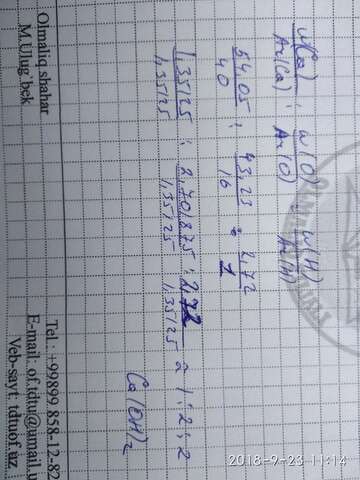 w(Ca)/Ar(Ca) : w(O)/Ar(O) : w(H)/Ar(H)
54,05/40 : 43,23/16 : 2,72/1
1,35125/1,35125 : 2,701875/1,35125 : 2,72/1,35125 ≈ 1:2:2
Ca(OH)₂
Olmaliq shahar
M.Ulug`bek
Tel.: +99899 858-12-82
E-mail: of.tdtu@umail.u
Veb-sayt: tdtuof.uz
2018-9-23 11:14